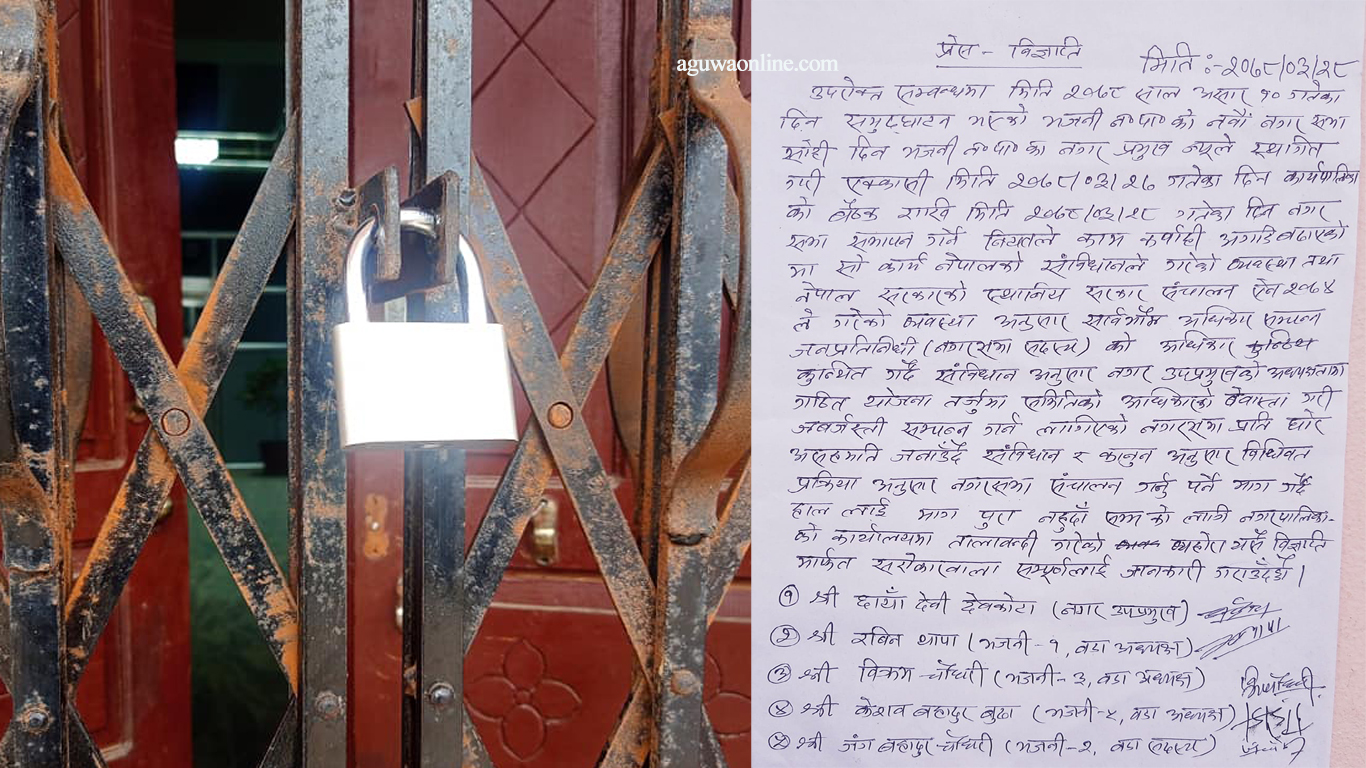 aguwaonline.com
प्रेस - विज्ञप्ति
मिति :- २०७८/०३/२८
उपरोक्त सम्बन्धमा मिति २०७८ साल असार १० गतेका
दिन समुद्घाटन भएको भजनी न०पा० को नवौं नगर सभा
सोही दिन भजनी न०पा० का नगर प्रमुख ज्यूले स्थागित
गरी एक्कासी मिति २०७८/०३/२७ गतेका दिन कार्यपालिका
को बैठक राखि मिति २०७८/०३/२८ गतेका दिन नगर
सभा समापन गर्ने नियतले काम कर्वाही अगाडि बढाएको
मा सो कार्य नेपालको संविधानले गरेको व्यवस्था तथा
नेपाल सरकारको स्थानिय सरकार संचालन ऐन २०७४
ले गरेको व्यवस्था अनुसार सार्वभौम अधिकार सम्पन्न
जनप्रतिनिधी (नगरसभा सदस्य) को अधिकार
कुन्ठित गर्दै संविधान अनुसार नगर उपप्रमुखको अध्यक्षतामा
गठित योजना तर्जुमा समितिको अधिकारको बेवास्ता गरी
जबर्जस्ती सम्पन्न गर्न लागिएको नगरसभा प्रति घोर
असहमति जनाउँदै संविधान र कानुन अनुसार विधिवत
प्रक्रिया अनुसार नगरसभा संचालन गर्नु पर्ने माग गर्दै
हाल लाई माग पुरा नहुदाँ सम्म को लागि नगरपालिका-
को कार्यालयमा तालाबन्दी गरेको व्यहोरा यसै विज्ञप्ति
मार्फत सरोकारवाला सम्पूर्णलाई जानकारी गराउँदछौं ।
① श्री छायाँ देवी देवकोटा (नगर उपप्रमुख)
② श्री रबिन थापा (भजनी-१, वडा अध्यक्ष)
③ श्री विक्रम चौधरी (भजनी-३, वडा अध्यक्ष)
④ श्री केशव बहादुर बुढा (भजनी-५, वडा अध्यक्ष)
⑤ श्री जंग बहादुर चौधरी (भजनी-२, वडा सदस्य)